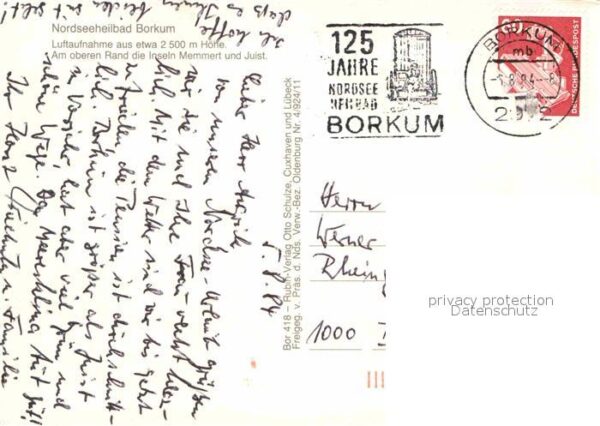 Nordseeheilbad Borkum
Luftaufnahme aus etwa 2 500 m Höhe.
Am oberen Rand die Inseln Memmert und Juist.
5.8.84
Lieber Herr
von unserem Nordsee-Urlaub grüßen
wir Sie und Ihre Frau recht herz-
lich. Mit dem Wetter sind wir bis jetzt
zufrieden, die Pension ist durchschnitt-
lich. Borkum ist größer als Juist
im Vorjahr, hat aber viel Grün und
schöne Wege. Der tut gut!
Ihr Franz u. Familie
Ich hoffe,
dass es Ihnen
beiden gut geht!
Bör 418 – Rubin-Verlag Otto Schulze, Cuxhaven und Lübeck
Freigeg. v. Präs. d. Nds. Verw.-Bez. Oldenburg Nr. 4/924/11
125
JAHRE
NORDSEE
HEILBAD
BORKUM
BORKUM
mb
8.84-8
2972
60
DEUTSCHE BUNDESPOST
Herrn
Werner
Rhein
1000
privacy protection
Datenschutz